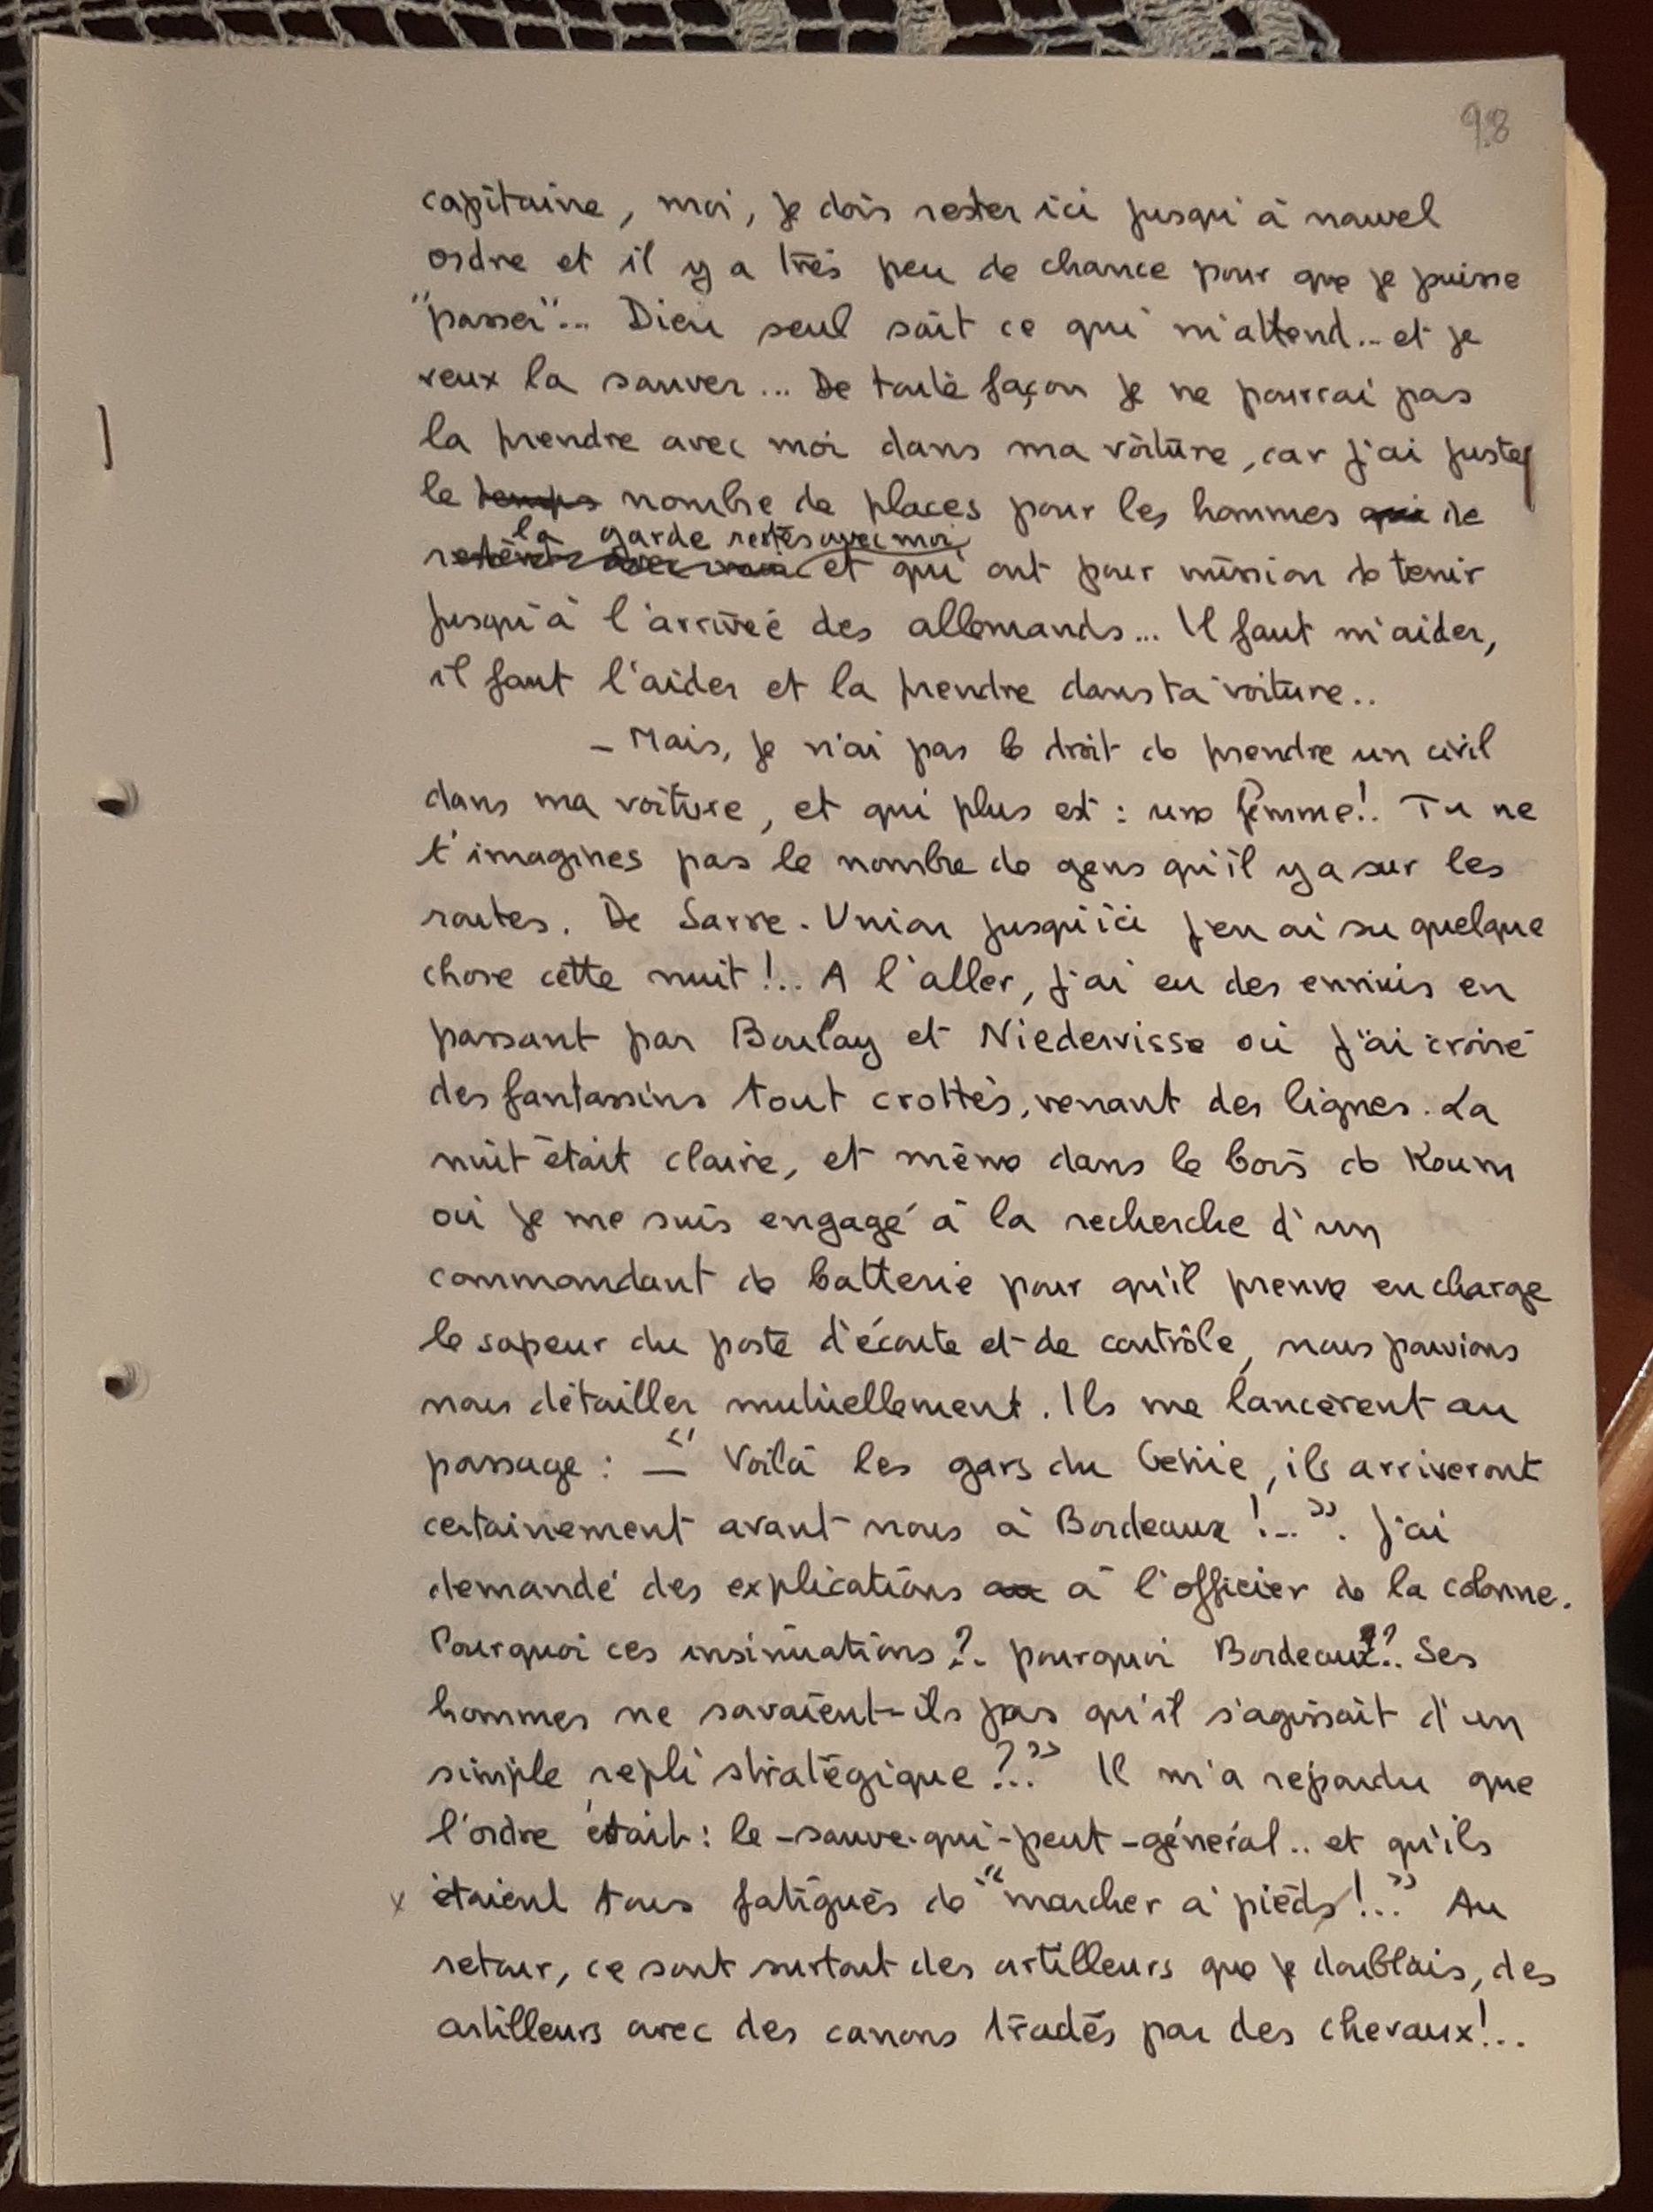 98
capitaine, moi, je dois rester ici jusqu'à nouvel
ordre et il y a très peu de chance pour que je puisse
"passer"... Dieu seul sait ce qui m'attend... et je
veux la sauver... De toute façon je ne pourrai pas
la prendre avec moi dans ma voiture, car j'ai juste
le temps nombre de places pour les hommes qui de
la garde restés avec moi
et qui ont pour mission de tenir
jusqu'à l'arrivée des allemands... Il faut m'aider,
il faut l'aider et la prendre dans ta voiture..
- Mais, je n'ai pas le droit de prendre un civil
dans ma voiture, et qui plus est : une femme!. Tu ne
t'imagines pas le nombre de gens qu'il y a sur les
routes. De Sarre-Union jusqu'ici j'en ai su quelque
chose cette nuit!.. A l'aller, j'ai eu des ennuis en
passant par Boulay et Niedervisse où j'ai croisé
des fantassins tout crottés, venant des lignes. La
nuit était claire, et même dans le bois de Koum
où je me suis engagé à la recherche d'un
commandant de batterie pour qu'il prenne en charge
le sapeur du poste d'écoute et de contrôle, nous pouvions
nous détailler mutuellement. Ils me lancèrent au
passage : — "Voilà les gars du Génie, ils arriveront
certainement avant nous à Bordeaux!...". J'ai
demandé des explications au à l'officier de la colonne.
Pourquoi ces insinuations?.. pourquoi Bordeaux?. Ses
hommes ne savaient-ils pas qu'il s'agissait d'un
simple repli stratégique?.." Il m'a répondu que
l'ordre était : le-sauve-qui-peut-général.. et qu'ils
x étaient tous fatigués de "marcher à pieds!.." Au
retour, ce sont surtout des artilleurs que je doublais, des
artilleurs avec des canons tractés par des chevaux!..